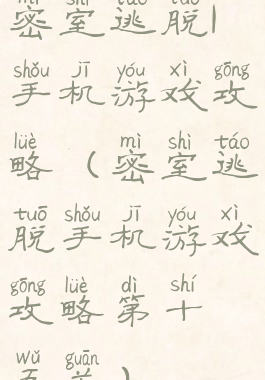 mì shì táo tuō
密室逃脱
shǒu jī yóu xì gōng
手机游戏攻
lüè mì shì táo
略（密室逃
tuō shǒu jī yóu xì
脱手机游戏
gōng lüè dì shí
攻略第十
wǔ guān
五关）